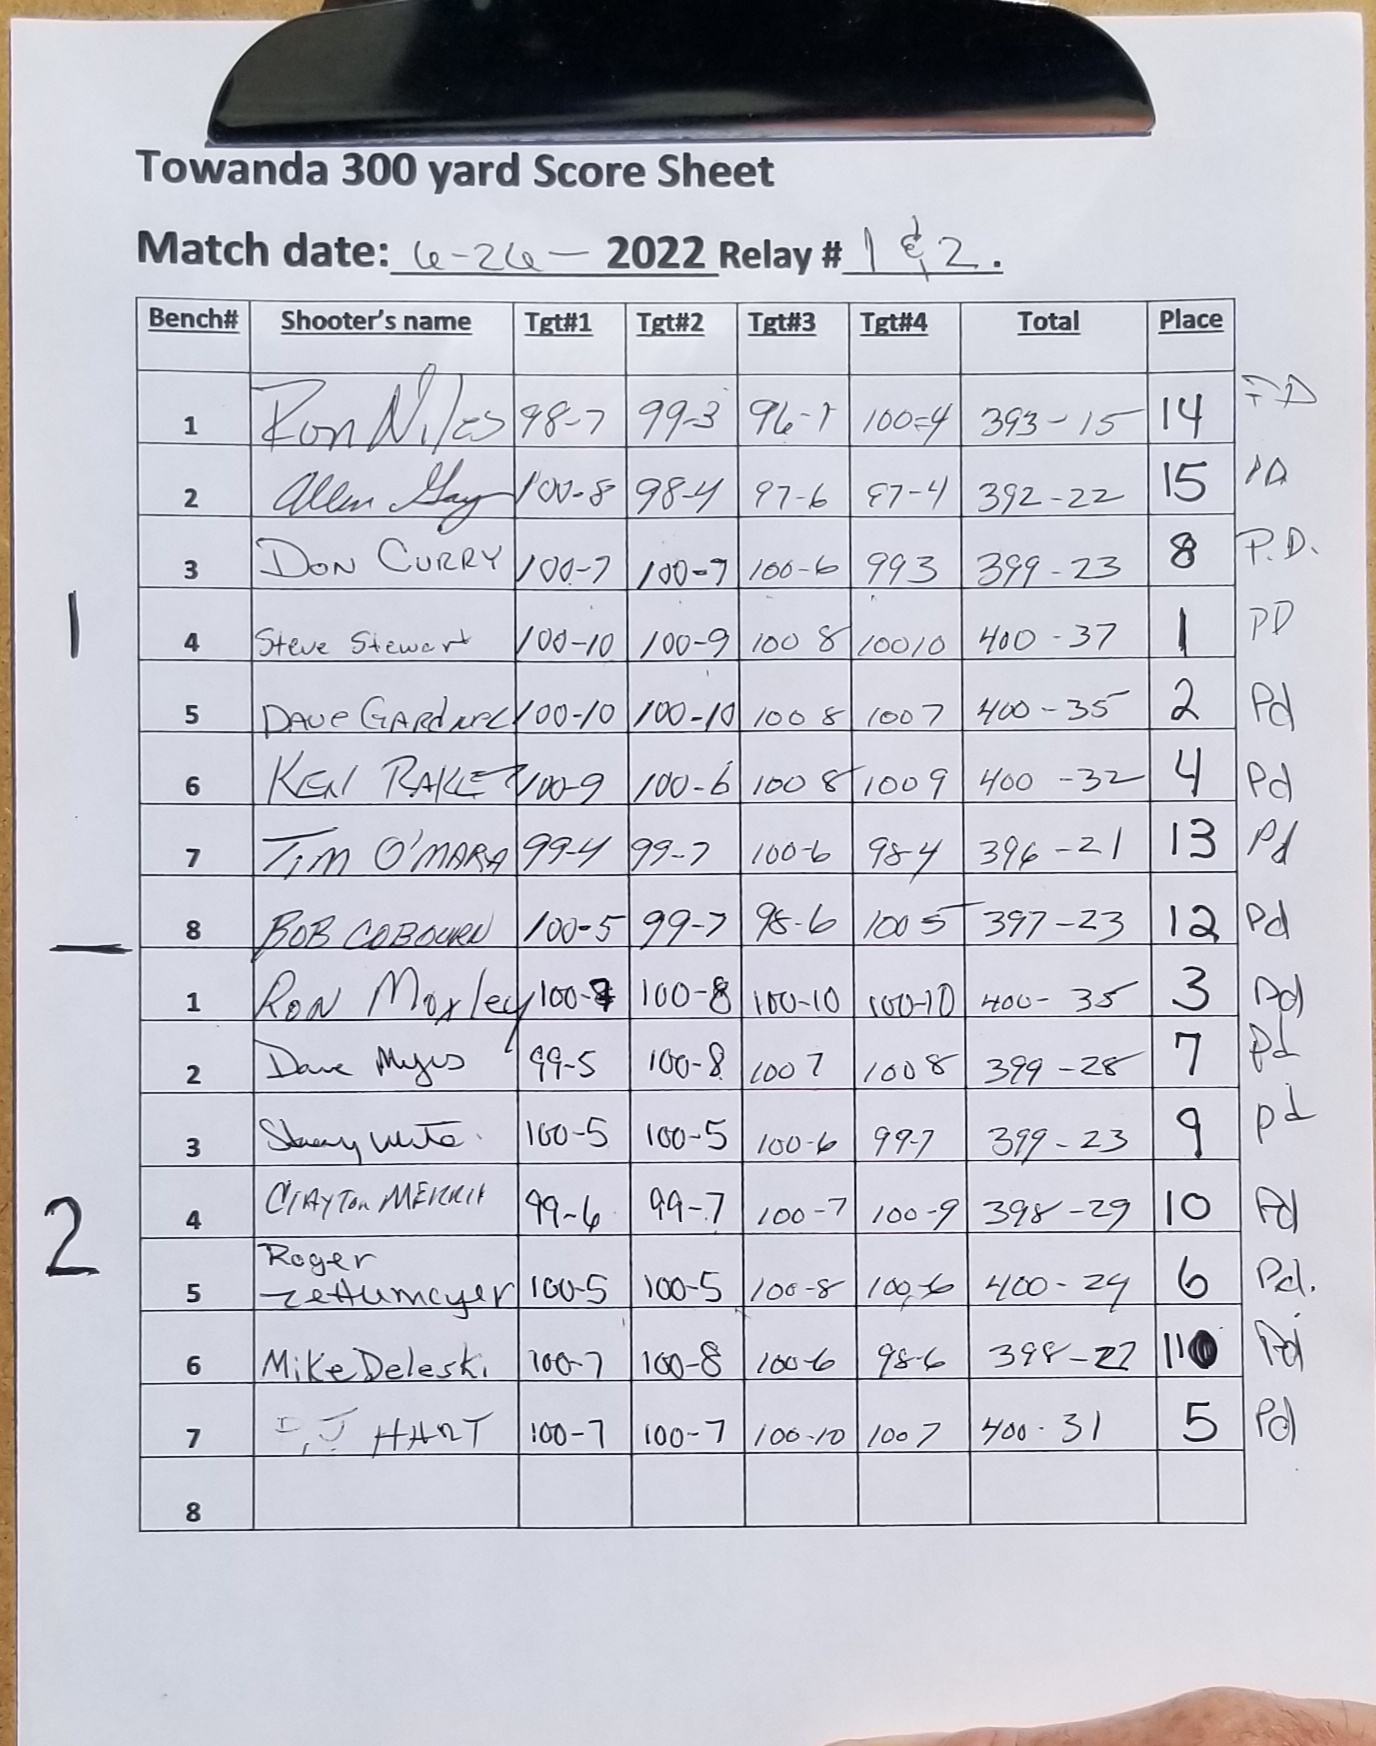 Towanda 300 yard Score Sheet
Match date: 6-26- 2022 Relay # 1 & 2.
Bench# Shooter's name Tgt#1 Tgt#2 Tgt#3 Tgt#4 Total Place
1 Ron Niles 98-7 99-3 96-1 100-4 393-15 14
2 Allen Gay 100-8 98-4 97-6 97-4 392-22 15
3 DON CURRY 100-7 100-7 100-6 993 399-23 8 P.D.
1
4 Steve Stewart 100-10 100-9 100 8 100 10 400-37 1 PD
5 DAVE GARDNER 100-10 100-10 100 8 100 7 400-35 2 Pd
6 KEN 100-9 100-6 100 8 100 9 400-32 4 Pd
7 TIM O'MARA 99-4 99-7 100-6 98-4 396-21 13 Pd
8 BOB COBOURN 100-5 99-7 98-6 100 5 397-23 12 Pd
1 RON Moxley 100-7 100-8 100-10 100-10 400-35 3 Pd
2 Dave Myers 99-5 100-8 100 7 100 8 399-28 7 Pd
3 100-5 100-5 100-6 99-7 399-23 9 pd
2
4 CLAYTON MERRIT 99-6 99-7 100-7 100-9 398-29 10 Pd
Roger
5 Zettlemoyer 100-5 100-5 100-8 100-6 400-24 6 Pd.
6 Mike Deleski 100-7 100-8 100-6 98-6 398-27 11 Pd
7 HART 100-7 100-7 100-10 100 7 400-31 5 Pd
8